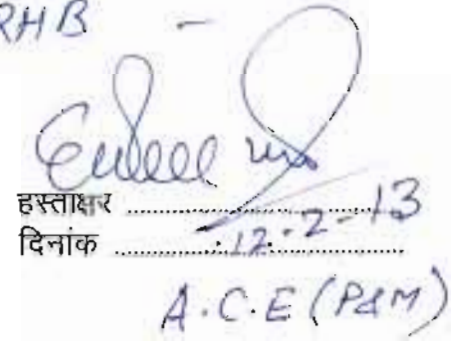 RHB -
हस्ताक्षर ........................
दिनांक ..12-2-13........
A.C.E (P&M)